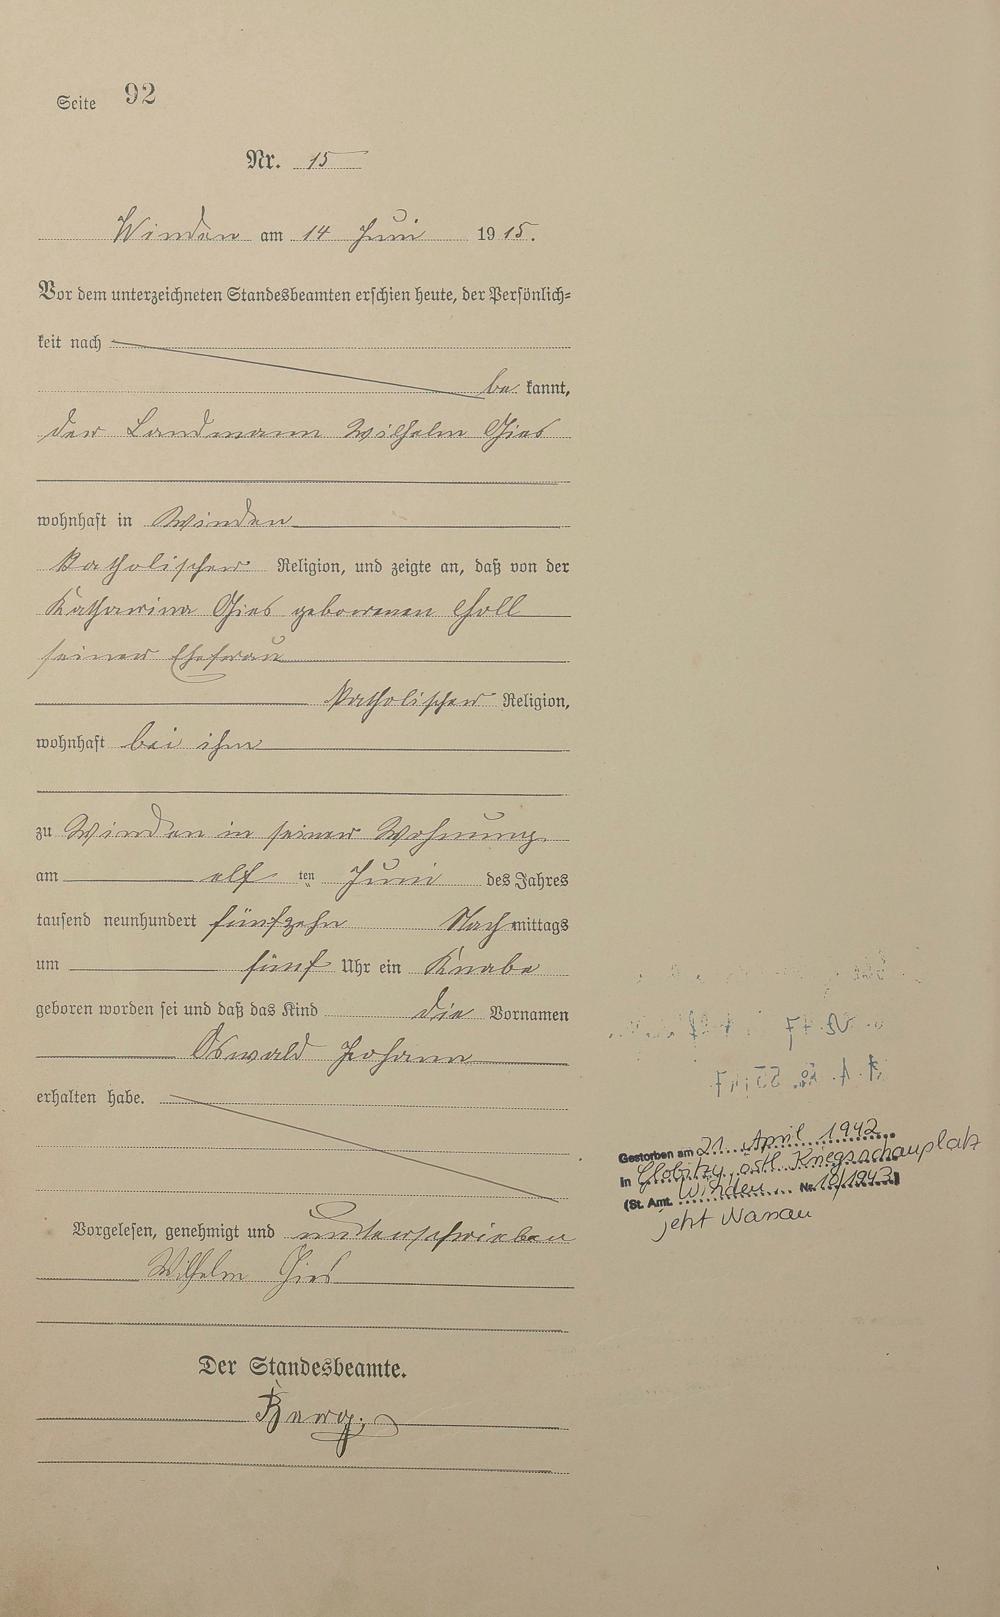 Seite 92
Nr. 15
Winden am 14 Juni 1915.
Vor dem unterzeichneten Standesbeamten erschien heute, der Persönlich-
keit nach
be kannt,
der Landmann Wilhelm Gies
wohnhaft in Winden
katholischer Religion, und zeigte an, daß von der
Katharina Gies geborenen Choll
seiner Ehefrau
katholischer Religion,
wohnhaft bei ihm
zu Winden in seiner Wohnung
am elf ten Juni des Jahres
tausend neunhundert fünfzehn Nachmittags
um fünf Uhr ein Knabe
geboren worden sei und daß das Kind die Vornamen
Oswald Johann
erhalten habe.
Gestorben am 21. April 1942
in Globitzy, östl. Kriegsschauplatz
(St. Amt. Winden Nr. 10/1943)
jetzt Nassau
Vorgelesen, genehmigt und unterschrieben
Wilhelm Gies
Der Standesbeamte.
Berg.